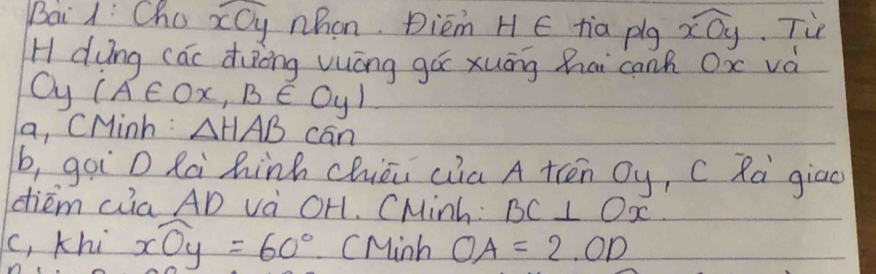 Bài 1: Cho xOy nhọn. Điểm H ∈ tia plg xOy. Từ
H dựng các đường vuông góc xuống hai cạnh Ox và
Oy (A ∈ Ox, B ∈ Oy)
a, CMinh: △HAB cân
b, gọi D là hình chiếu của A trên Oy, C là giao
điểm của AD và OH. CMinh: BC ⊥ Ox.
c, Khi xOy = 60°. CMinh OA = 2.OD